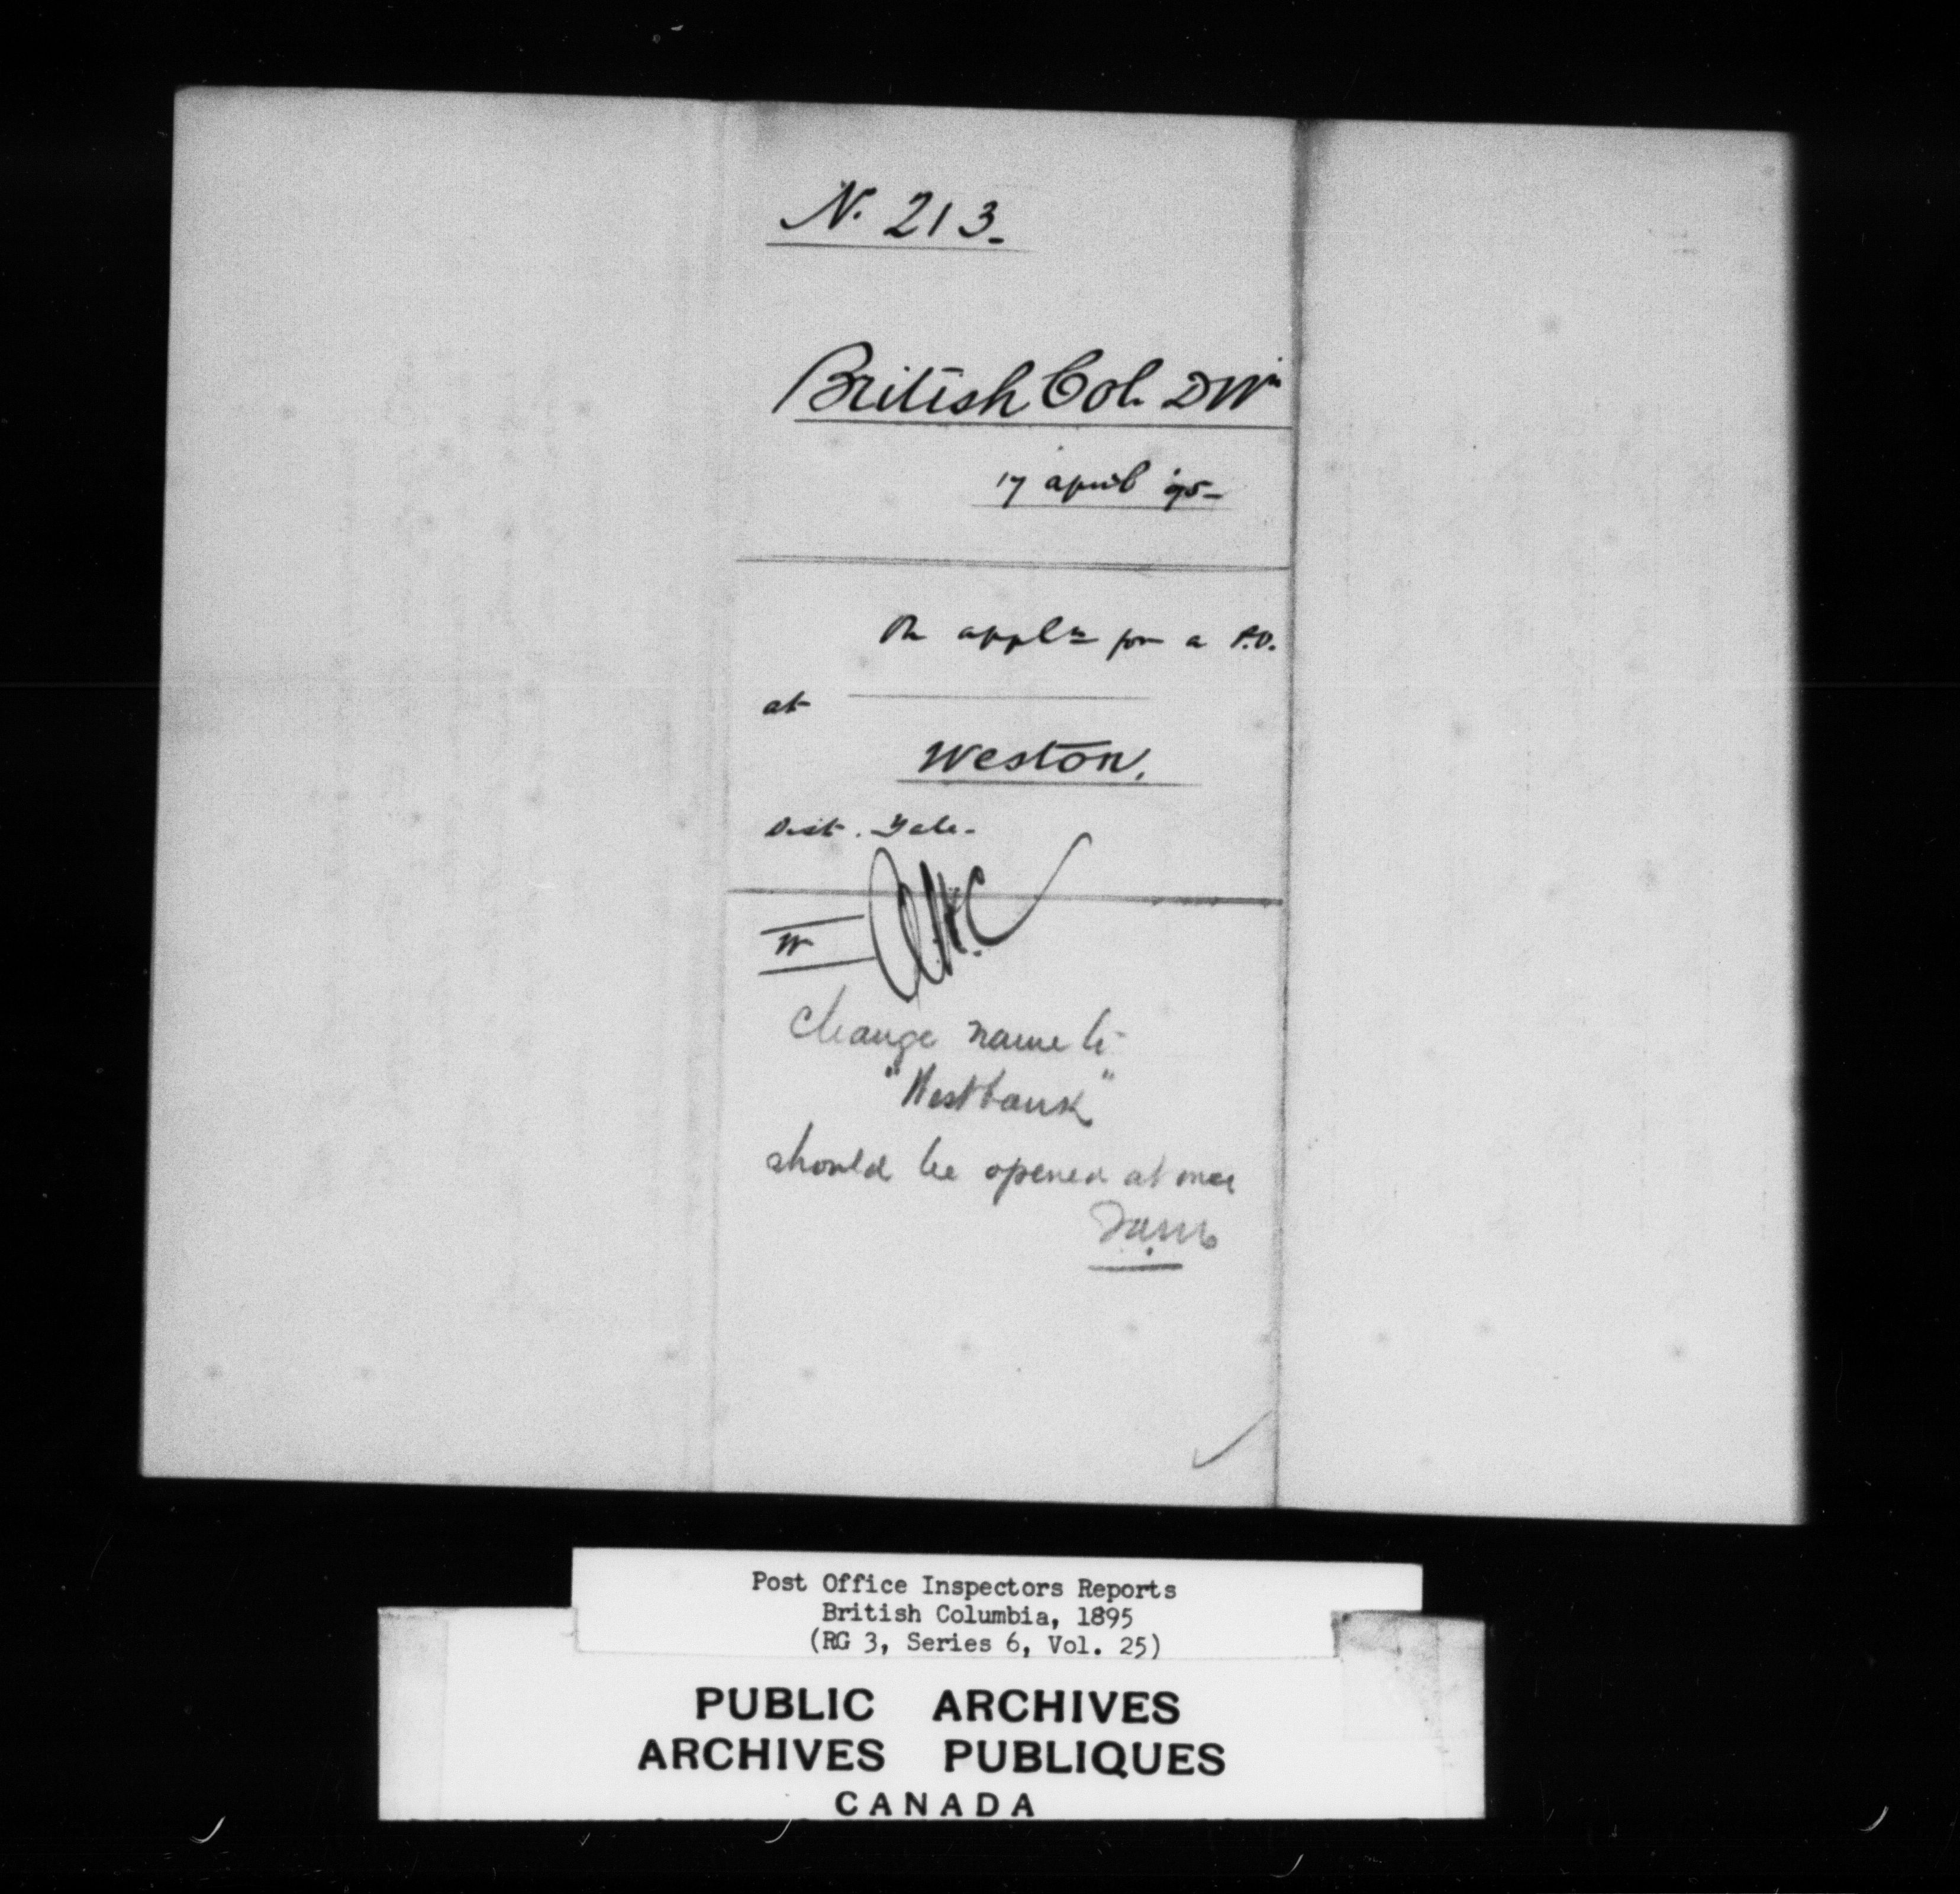 N. 213.
British Col. Dn
17 April '95
On appln for a P.O.
at
Weston.
Dist. Yale.
W
Change name to
"Westbank"
should be opened at once
Post Office Inspectors Reports
British Columbia, 1895
(RG 3, Series 6, Vol. 25)
PUBLIC ARCHIVES
ARCHIVES PUBLIQUES
CANADA